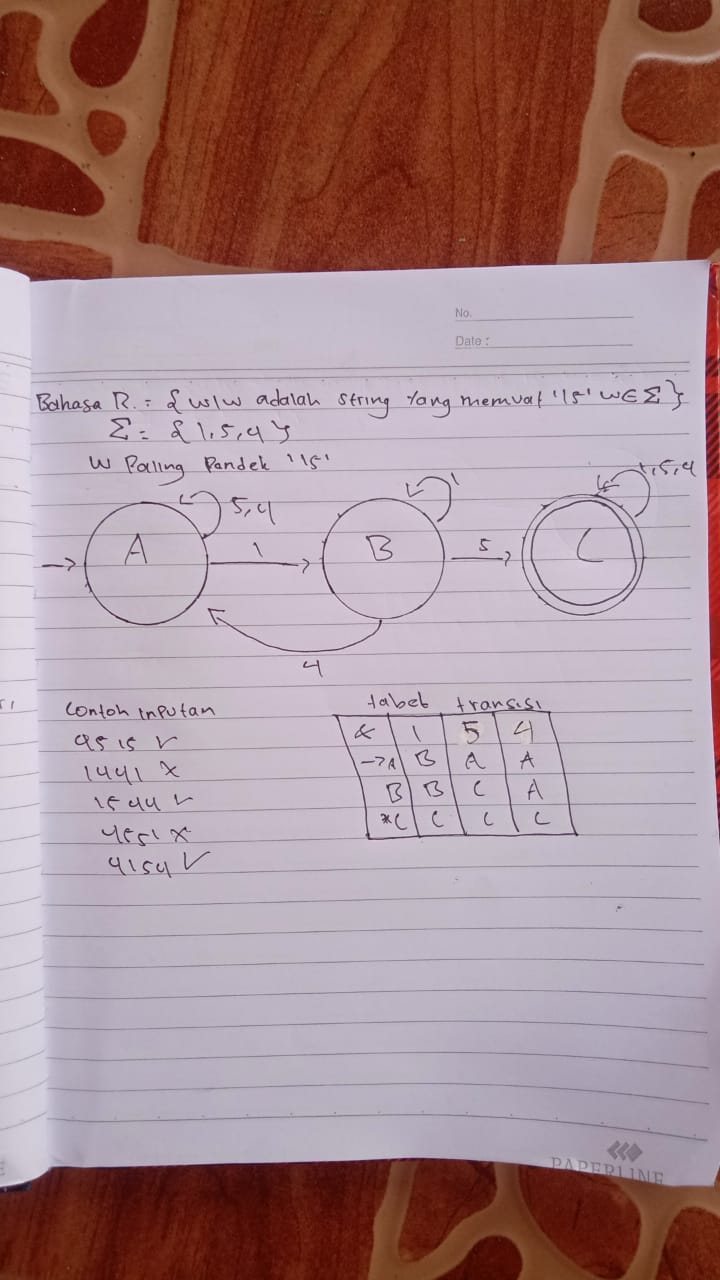 No.
Date :
Bahasa R. = { w/w adalah string yang memuat '15' w∈Σ }
Σ = { 1, 5, 4 }
W Paling Pendek '15'
A 5,4 1 B 1 5 C 1,5,4
4
Contoh inputan
4515 ✓
1441 ×
1544 ✓
4551 ×
4154 ✓
tabel transisi
& 1 5 4
→A B A A
B B C A
*C C C C
PAPERLINE